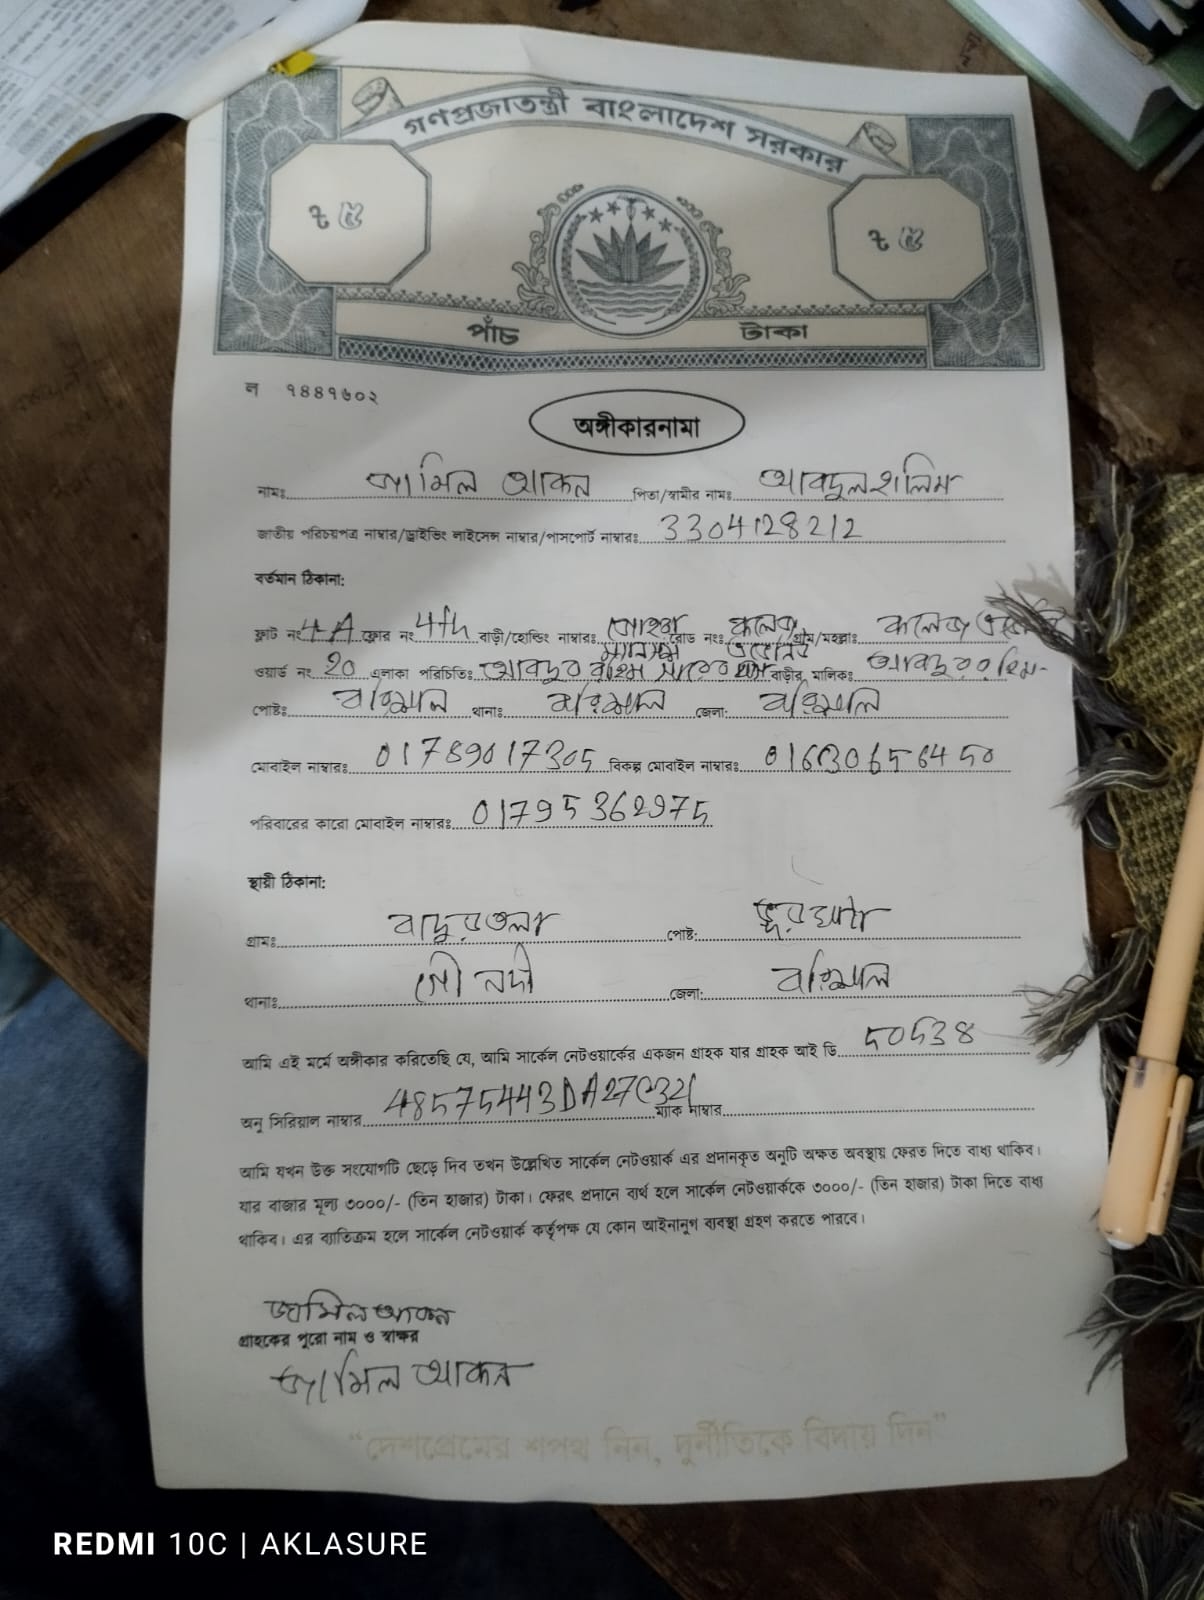 গণপ্রজাতন্ত্রী বাংলাদেশ সরকার
৳ ৫ ৳ ৫
পাঁচ টাকা
ল ৭৪৪৭৬০২
অঙ্গীকারনামা
নামঃ জামিল আকন পিতা/স্বামীর নামঃ আবদুল হালিম
জাতীয় পরিচয়পত্র নাম্বার/ড্রাইভিং লাইসেন্স নাম্বার/পাসপোর্ট নাম্বারঃ 3304128212
বর্তমান ঠিকানা:
ফ্লাট নং 4A ফ্লোর নং 4th বাড়ী/হোল্ডিং নাম্বারঃ রোড নং: কলেজ গ্রাম/মহল্লাঃ কলেজ
ওয়ার্ড নং 20 এলাকা পরিচিতিঃ আবদুর রহিম বাড়ীর মালিকঃ আবদুর রহিম
পোষ্টঃ বরিশাল থানাঃ বরিশাল জেলা: বরিশাল
মোবাইল নাম্বারঃ 01789017305 বিকল্প মোবাইল নাম্বারঃ
পরিবারের কারো মোবাইল নাম্বারঃ 01795362975
স্থায়ী ঠিকানা:
গ্রামঃ বাদুরতলা পোষ্ট:
থানাঃ গৌরনদী জেলা: বরিশাল
আমি এই মর্মে অঙ্গীকার করিতেছি যে, আমি সার্কেল নেটওয়ার্কের একজন গ্রাহক যার গ্রাহক আই ডি 50538
অনু সিরিয়াল নাম্বার 48575443DA27C32 ম্যাক নাম্বার
আমি যখন উক্ত সংযোগটি ছেড়ে দিব তখন উল্লেখিত সার্কেল নেটওয়ার্ক এর প্রদানকৃত অনুটি অক্ষত অবস্থায় ফেরত দিতে বাধ্য থাকিব।
যার বাজার মূল্য ৩০০০/- (তিন হাজার) টাকা। ফেরৎ প্রদানে ব্যর্থ হলে সার্কেল নেটওয়ার্ককে ৩০০০/- (তিন হাজার) টাকা দিতে বাধ্য
থাকিব। এর ব্যতিক্রম হলে সার্কেল নেটওয়ার্ক কর্তৃপক্ষ যে কোন আইনানুগ ব্যবস্থা গ্রহণ করতে পারবে।
জামিল আকন
গ্রাহকের পুরো নাম ও স্বাক্ষর
জামিল আকন
“দেশপ্রেমের শপথ নিন, দুর্নীতিকে বিদায় দিন”
REDMI 10C | AKLASURE